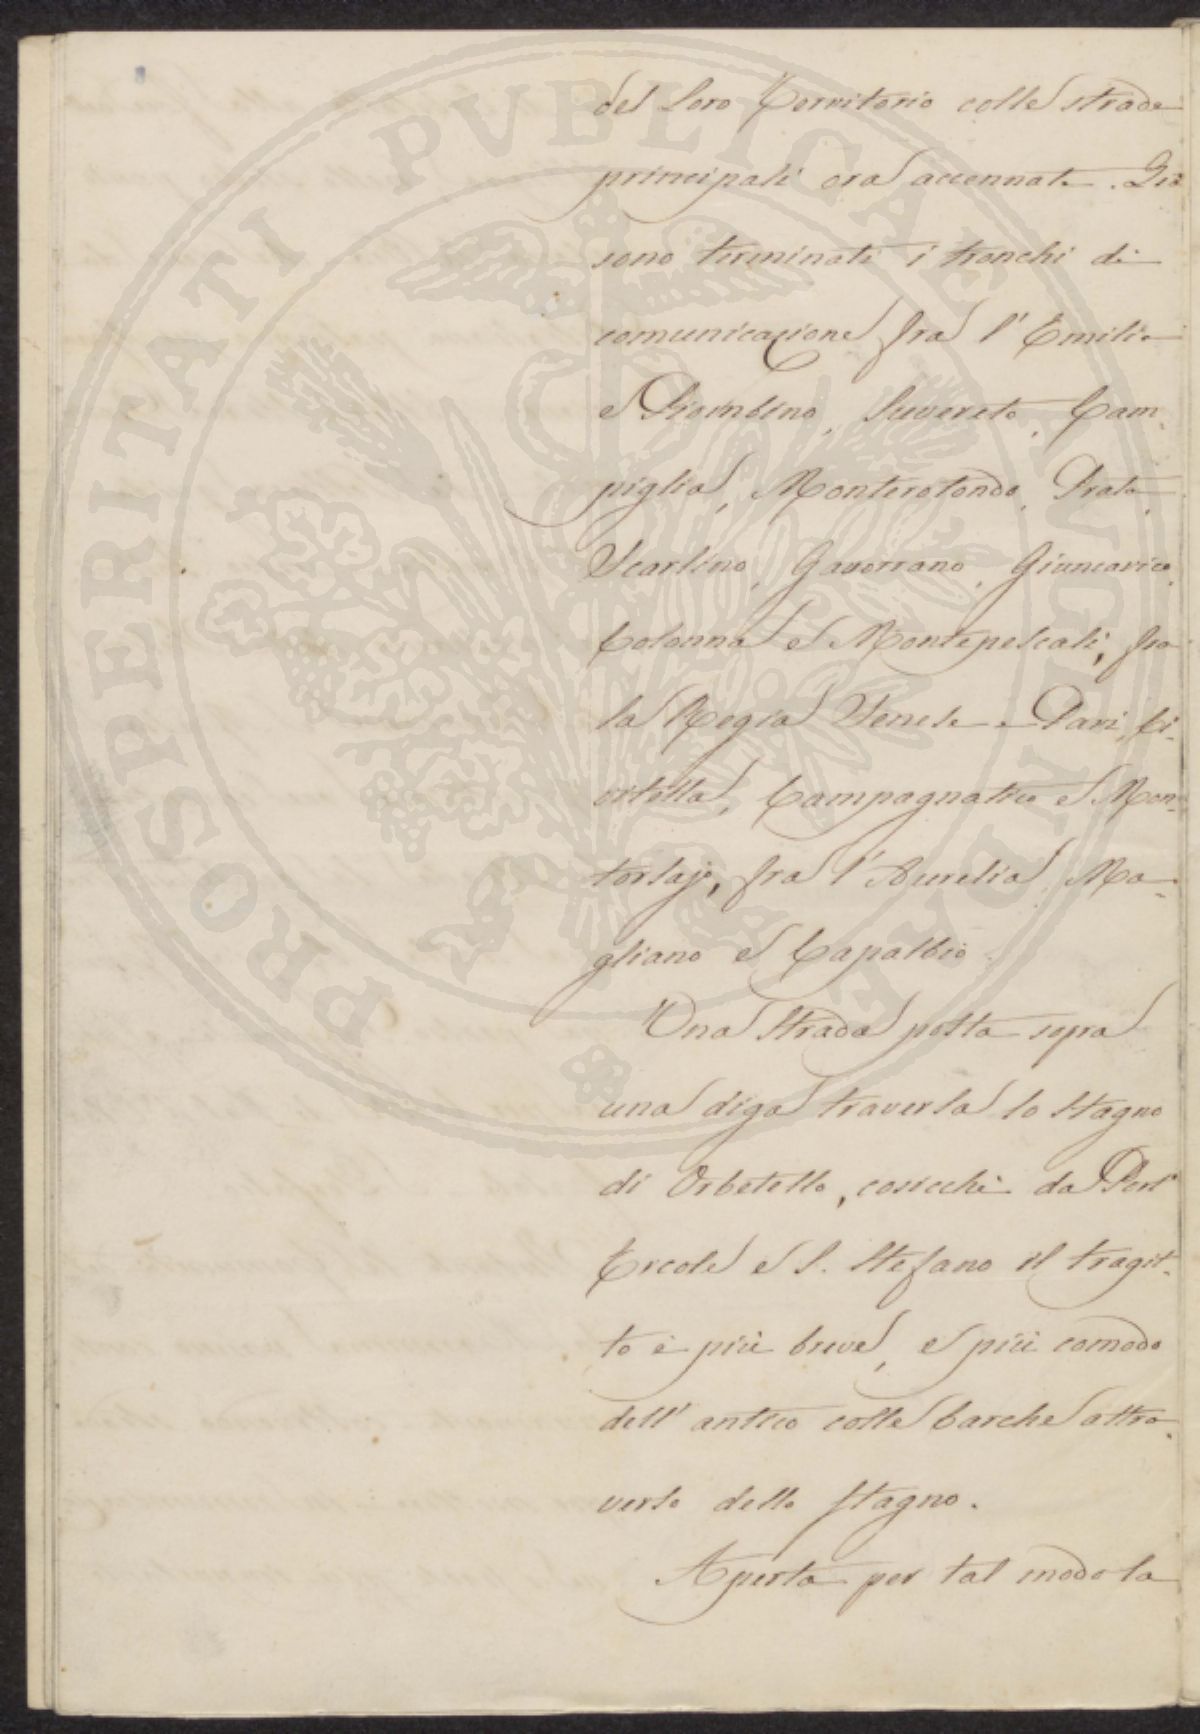 del Loro Territorio colle strade
principali ora accennate. Già
sono terminati i tronchi di
comunicazione fra l'Emilia
e Piombino, Suvereto, Cam-
piglia, Monterotondo, Prata,
Scarlino, Gavorrano, Giuncarico,
Colonna e Montepescali, fra
la Regia Senese e Pari, Ci-
vitella, Campagnatico e Mon-
torsajo, fra l'Aurelia, Ma-
gliano e Capalbio.
Una strada posta sopra
una diga traversa lo stagno
di Orbetello, cosicchè da Port'
Ercole e S. Stefano il tragit-
to è più breve, e più comodo
dell' antico colle barche attra-
verso dello stagno.
Aperta per tal modo la
PROSPERITATI PVBLICAE AVGENDAE